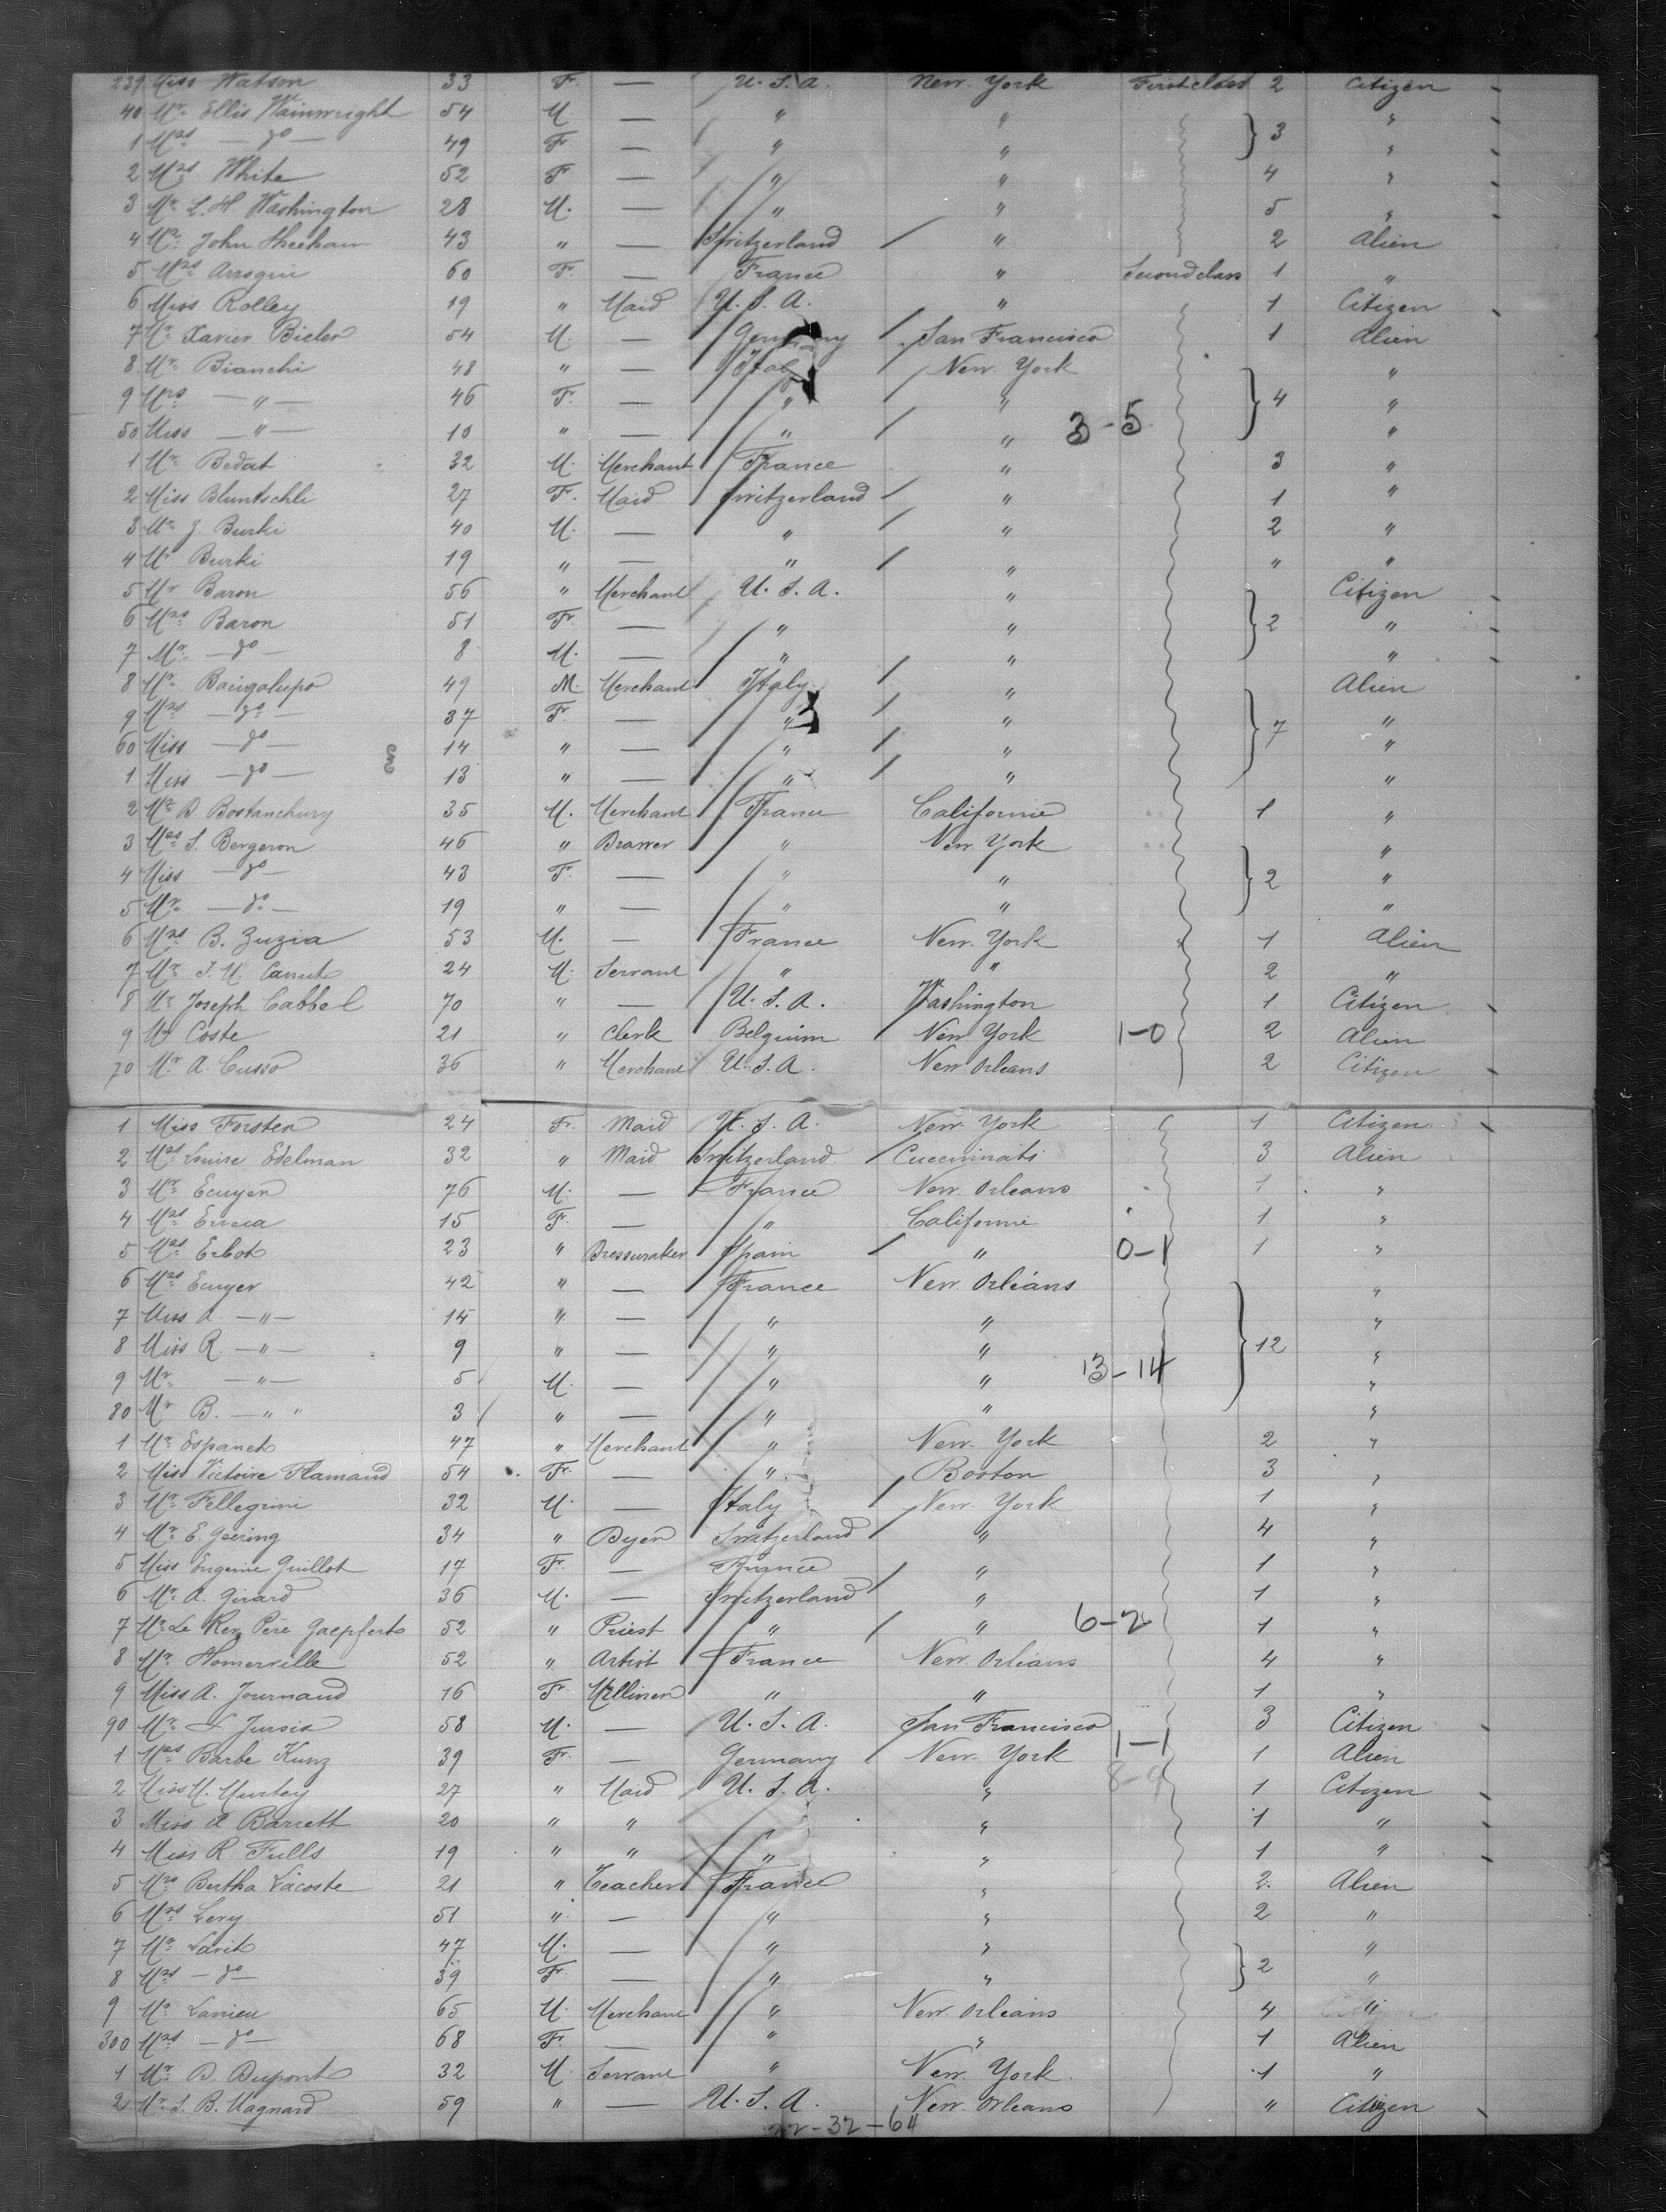 239 Miss Watson 33 F. — U.S.A. New York First class 2 Citizen
40 Mr. Ellis Wainwright 54 M — " " } 3 "
1 Mrs — do — 49 F — " " "
2 Mrs White 52 F — " " 4 "
3 Mr. L. H. Washington 28 M. — " " 5 "
4 Mr. John Sheeham 43 " — Switzerland " 2 Alien
5 Mrs 60 F. — France " Second class 1 "
6 Miss Rolley 19 " Maid U.S.A. " 1 Citizen
7 Mr. Xavier Bieler 54 M. — Germany San Francisco 1 Alien
8 Mr. Bianchi 48 " — Italy New York "
9 Mrs — " — 46 F. — " " } 4 "
50 Miss — " — 10 " — " " 3-5 "
1 Mr. Bedat 32 M. Merchant France " 3 "
2 Miss Bluntschli 27 F. Maid Switzerland " 1 "
3 Mr J Burki 40 M. — " " 2 "
4 Mr Burki 19 " — " " " "
5 Mr Baron 56 " Merchant U.S.A. " Citizen
6 Mrs Baron 51 F. — " " } 2 "
7 Mr. — do — 8 M. — " " "
8 Mr. 49 M. Merchant Italy " Alien
9 Mrs — do — 37 F. — " " } 7 "
60 Miss — do — 14 " — " " "
1 Miss — do — 13 " — " " "
2 Mr. D Bostanchury 35 M. Merchant France Californie 1 "
3 Mrs S. Bergeron 46 " " New York "
4 Miss — do — 43 F. — " " } 2 "
5 Mr. — do — 19 " — " " "
6 Mrs B. Zuzia 53 M. — France New York 1 Alien
7 Mr. J. M. 24 M. Servant " " 2 "
8 Mr Joseph Cabbel 70 " — U.S.A. Washington 1 Citizen
9 Mr Coste 21 " Clerk Belgium New York 1-0 2 Alien
70 Mr A. Cusso 36 " Merchant U.S.A. New Orleans 2 Citizen
1 Miss Forster 24 F. Maid U.S.A. New York 1 Citizen
2 Mrs Louise Edelman 32 " Maid Switzerland Cuccinnati 3 Alien
3 Mr. Ecuyer 76 M. — France New Orleans 1 "
4 Mrs 15 F. — " Californie 1 "
5 Mrs Erbot 23 " Dressmaker Spain " 0-1 1 "
6 Mrs Ecuyer 42 " — France New Orléans "
7 Miss A. — " — 14 " — " " "
8 Miss R. — " — 9 " — " " } 12 "
9 Mr. — " — 5 M. — " " 13-14 "
80 Mr B. — " " 3 " — " " "
1 Mr. Espanet 47 " Merchant " New York 2 "
2 Miss Victoire Flamand 54 F. — " Boston 3 "
3 Mr. Fellegrini 32 M. — Italy New York 1 "
4 Mr. E Geering 34 " Dyer Switzerland " 4 "
5 Miss Eugenie Guillot 17 F. — France " 1 "
6 Mr. A. Girard 36 M. — Switzerland " 1 "
7 Mr. Le Rev. Père Gaepferts 52 " Priest " " 6-2 1 "
8 Mr. Homerville 52 " Artist France New Orléans 4 "
9 Miss A. Journaud 16 F. Milliner " " 1 "
90 Mr. 58 M. — U.S.A. San Francisco 3 Citizen
1 Mrs Barbe Kunz 39 F. — Germany New York 1-1 1 Alien
2 Miss M. 27 " Maid U.S.A. " 1 Citizen
3 Miss A Barrett 20 " " " 1 "
4 Miss R Fulls 19 " " " " 1 "
5 Mrs Bertha Lacoste 21 " Teacher France " 2. Alien
6 Mrs Levy 51 " — " " 2 "
7 Mr. Larit 47 M. — " " } 2 "
8 Mrs — do — 39 F. — " " "
9 Mr. Larrieu 65 M. Merchant " New Orléans 4 "
300 Mrs — do — 68 F. — " " 1 Alien
1 Mr. D. Dupont 32 M. Servant " New York 1 "
2 Mr. S. B. Magnard 59 " — U.S.A. New Orléans " Citizen
-32-64